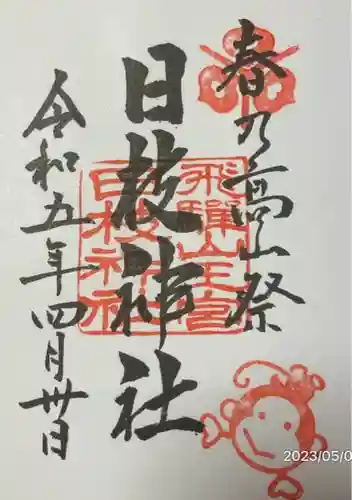 春乃高山祭
日枝神社
飛騨山王宮
日枝神社
令和五年四月卅日
2023/05/0